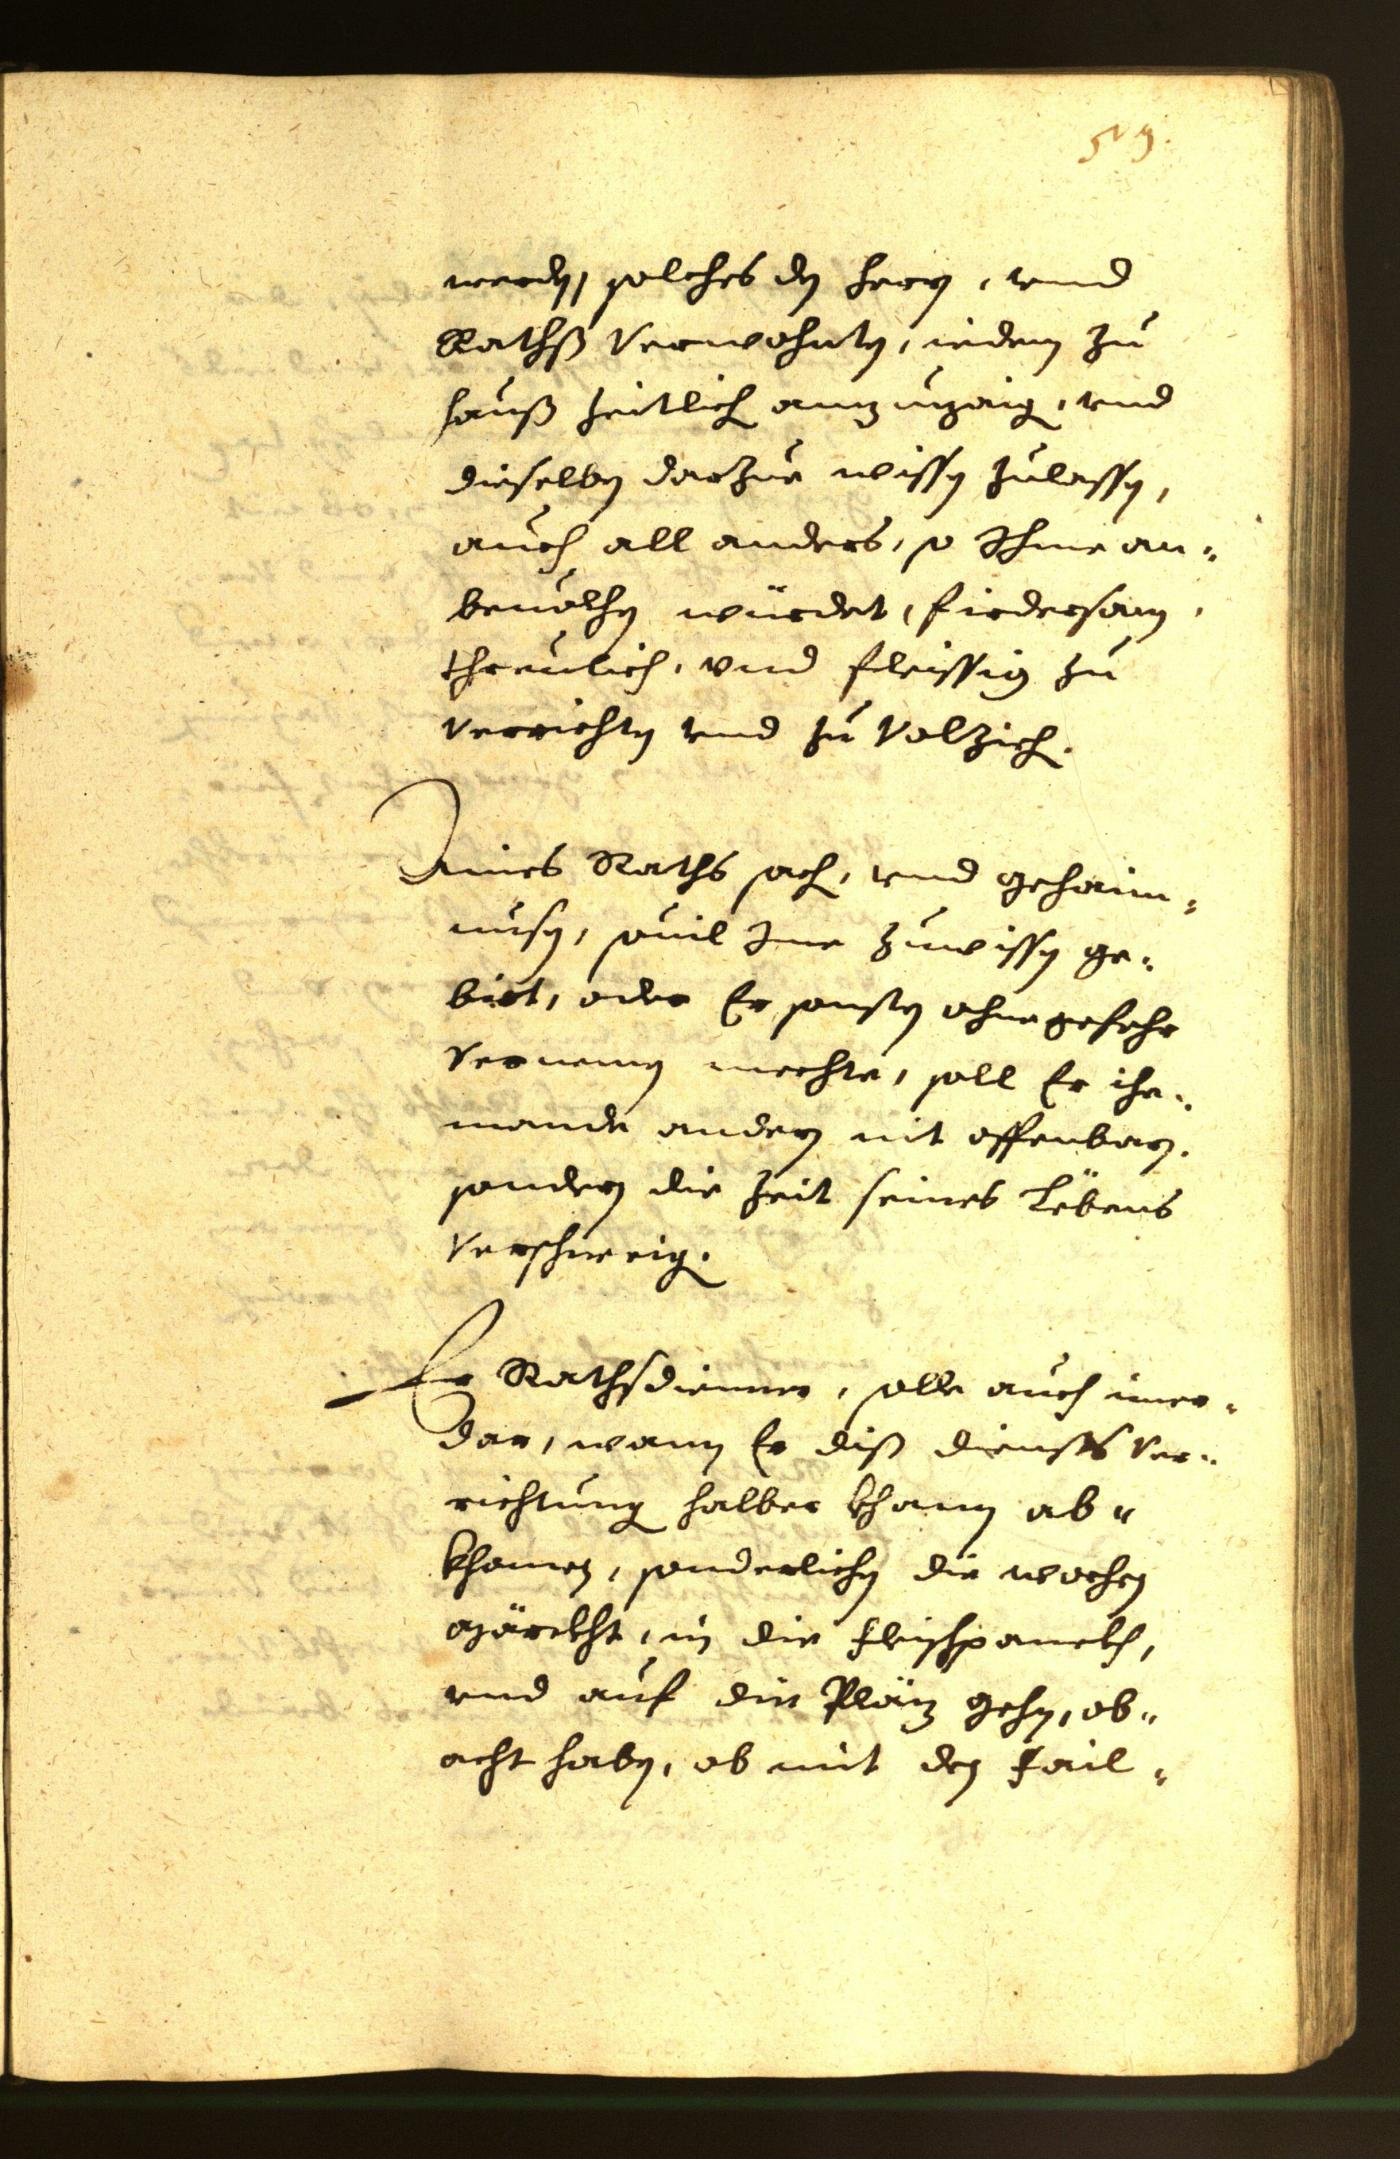 59.
werden, solches den herrn, vnnd
Rathß Verwohnten, iedem zu
hauß zeitlich annzuzaigen, vnnd
dieselben darzue wissen zulassen,
auch all anders, so Ihme an-
beuolhen würdet, fürdersam,
threulich, vnd fleissig zu
Verrichten vnnd zu Volziehen.
Aines Raths sachen, vnnd gehaim-
nusen, souil Ime zuwissen ge-
birt, oder Er sonsten ohne gefehr
Vernemen mechte, soll Er ihe-
mande andern nit offenbarn.
sondern die zeit seines Lëbens
Verschweigen.
Er Rathsdienner, solle auch imer-
dar, wann Er diß diensts Ver-
richtung halber khann ab-
khomen, sonderlichen die wochen
märckht, in die Fleischpanckh,
vnnd auf die Pläz gehen, ob-
acht haben, ob mit den Fail-